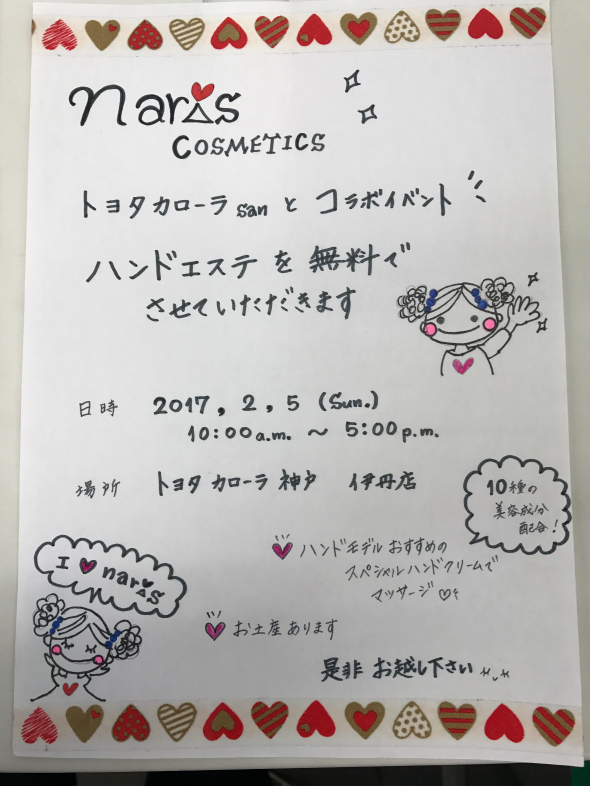 naris
COSMETICS
トヨタカローラ san と コラボイベント
ハンドエステ を 無料で
させていただきます
日時 2017, 2, 5 (Sun.)
10:00a.m. ～ 5:00p.m.
場所 トヨタ カローラ 神戸 伊丹店
10種の
美容成分
配合!
ハンドモデル おすすめの
スペシャルハンドクリームで
マッサージ♡
I ♥ naris
お土産あります
是非 お越し下さい